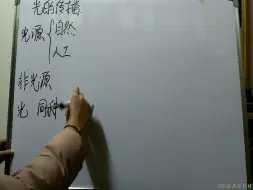 光的传播
光源 { 自然
人工
非光源
光 同种